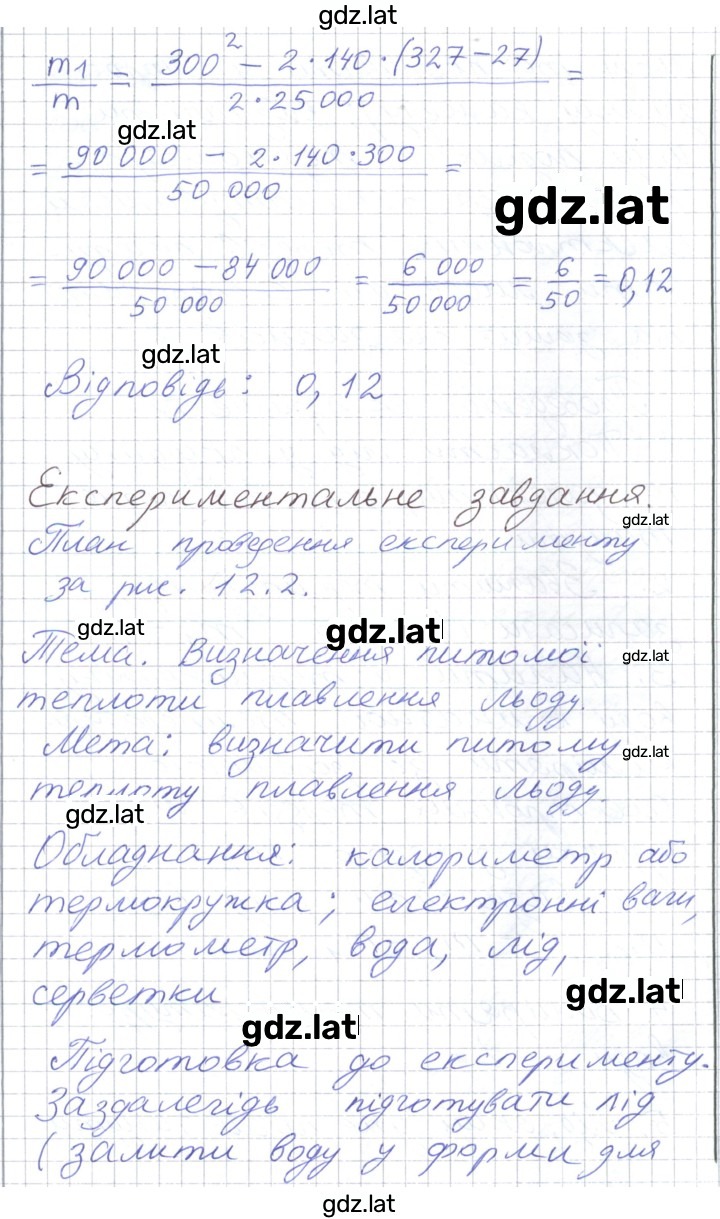 gdz.lat
m1/m = (300² − 2·140·(327−27))/(2·25 000) =
gdz.lat
= (90 000 − 2·140·300)/(50 000) =
gdz.lat
= (90 000 − 84 000)/(50 000) = 6 000/50 000 = 6/50 = 0,12
gdz.lat
Відповідь: 0,12
Експериментальне завдання.
gdz.lat
План проведення експерименту
за рис. 12.2.
gdz.lat
gdz.lat
Тема. Визначення питомої
gdz.lat
теплоти плавлення льоду.
Мета: визначити питому
gdz.lat
теплоту плавлення льоду.
gdz.lat
Обладнання: калориметр або
термокружка; електронні ваги,
термометр, вода, лід,
серветки
gdz.lat
gdz.lat
Підготовка до експерименту.
Заздалегідь підготувати лід
(залити воду у форми для
gdz.lat